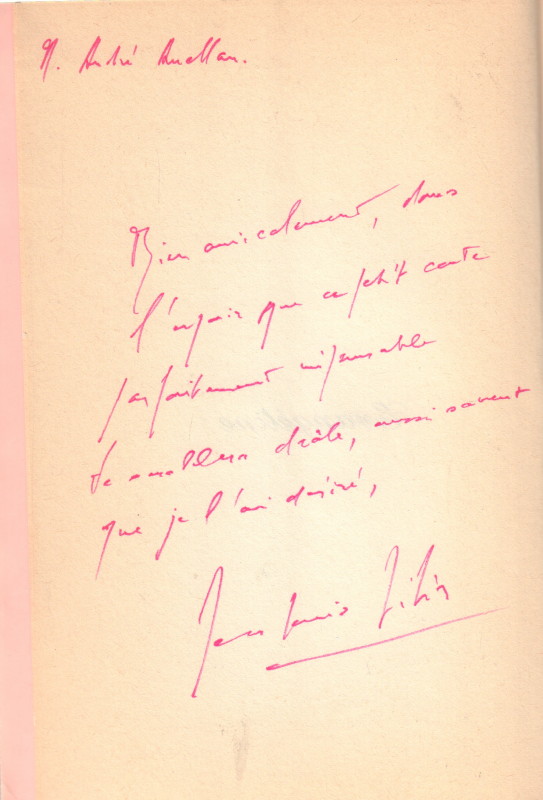 M. André Ruellan.
Bien amicalement, dans
l'espoir que ce petit conte
parfaitement impensable
te semblera drôle, aussi souvent
que je l'ai désiré,
Jean Louis